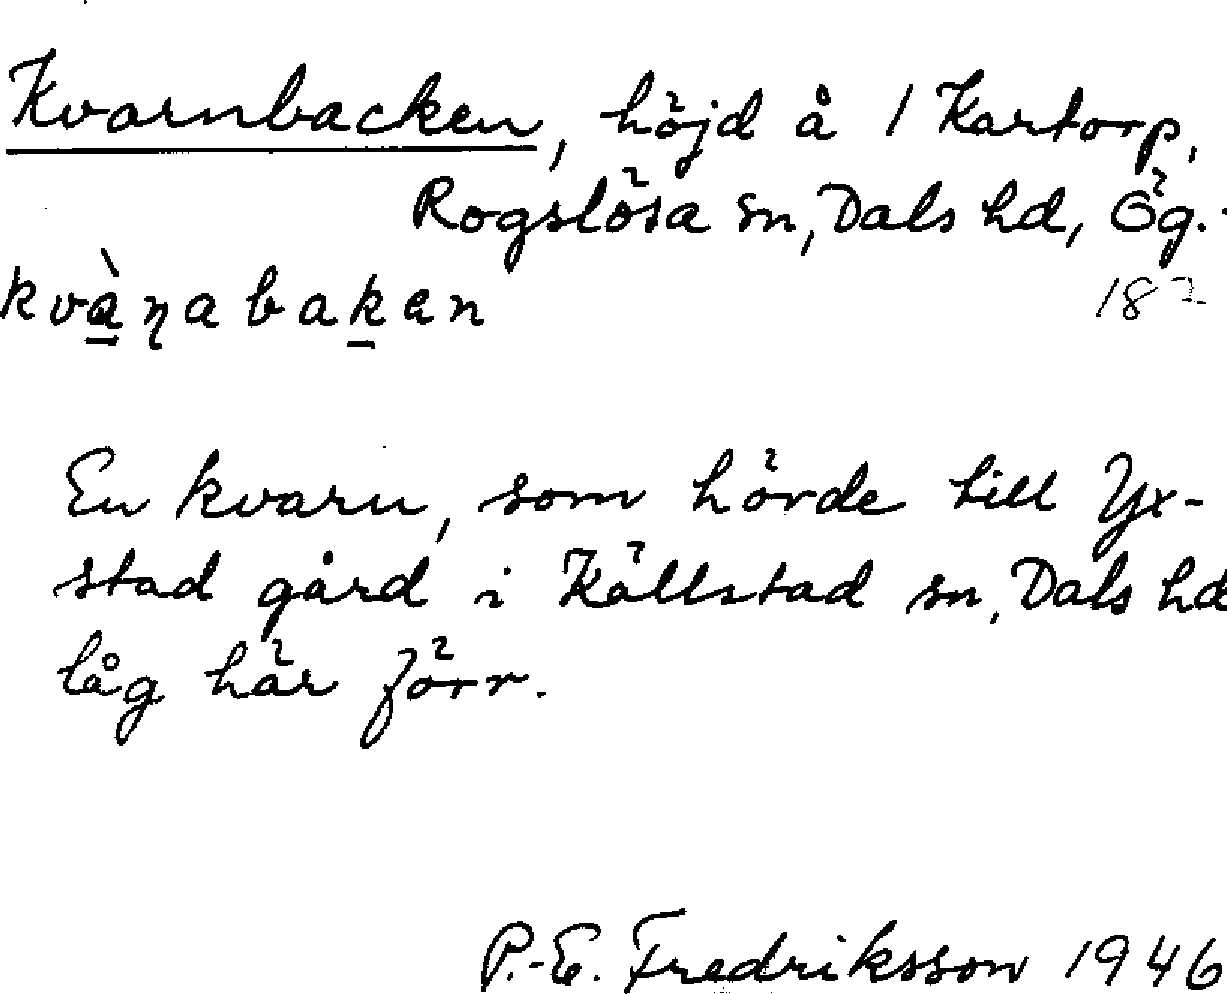 Kvarnbacken, höjd å 1 Kartorp,
Rogslösa sn, Dals hd, Ög.
kvàɳabaken 182
En kvarn, som hörde till Yx-
stad gård i Källstad sn, Dals hd
låg här förr.
P.-E. Fredriksson 1946